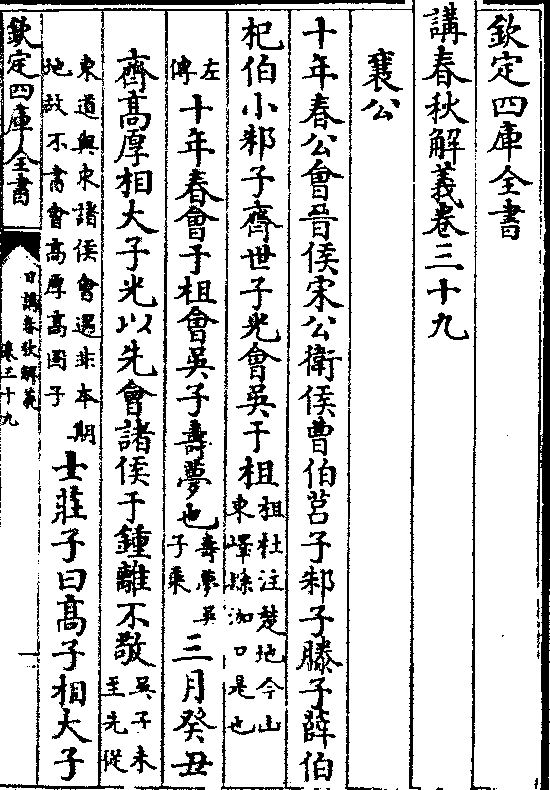 欽定四庫全書
講春秋解義卷三十九
襄公
十年春公會晉侯宋公衛侯曹伯莒子邾子滕子薛伯
杞伯小邾子齊世子光會吳于柤柤杜注楚地今山東嶧縣泇口是也
左傳十年春會于柤會吳子壽夢也壽夢吳子乘三月癸丑
齊高厚相大子光以先會諸侯于鍾離不敬吳子未至光從
東道與東諸侯會遇非本期地故不書會高厚高固子士莊子曰高子相大子
欽定四庫全書
日講春秋解義
卷三十九
一